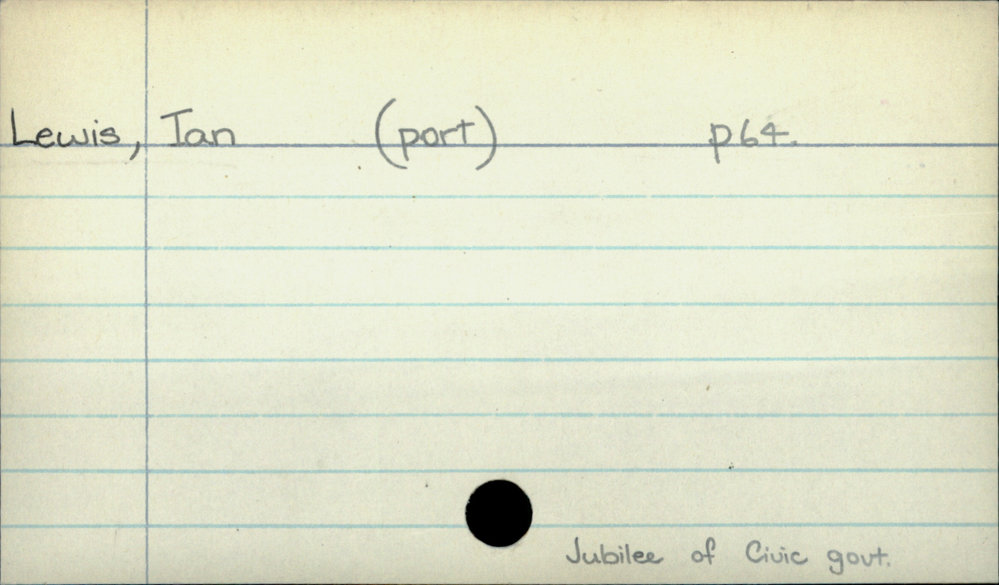 Lewis, Ian (port) p64.
Jubilee of Civic govt.